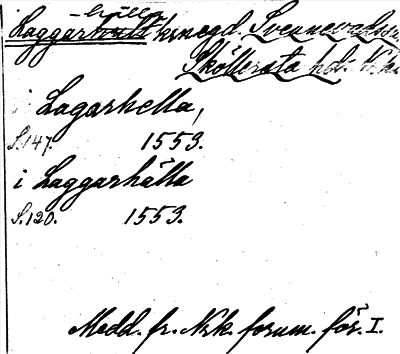 -hälla
Laggarhult krnegd. Svennevads sn
Sköllersta hd.
i Lagarhella,
S.147. 1553.
i Laggarhälla
S.120. 1553.
Medd. fr. Nrk. fornm. för. I.